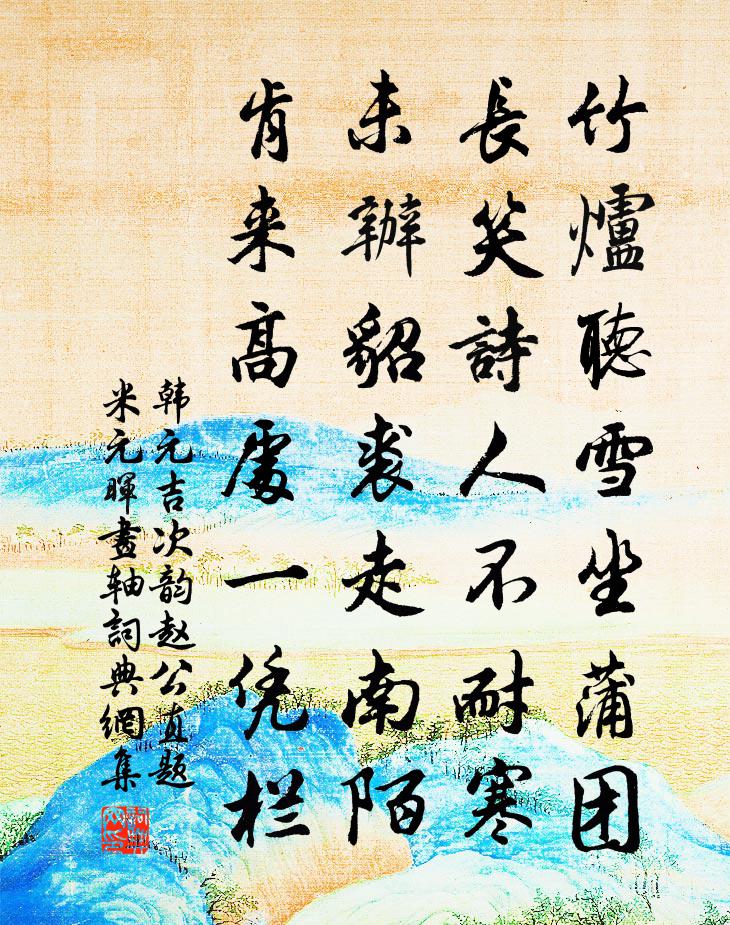 竹爐聽雪坐蒲团
長笑詩人不耐寒
未辦貂裘走南陌
肯来高處一凭栏
韩元吉次韵赵公直题
米元暉畫轴詞典網集